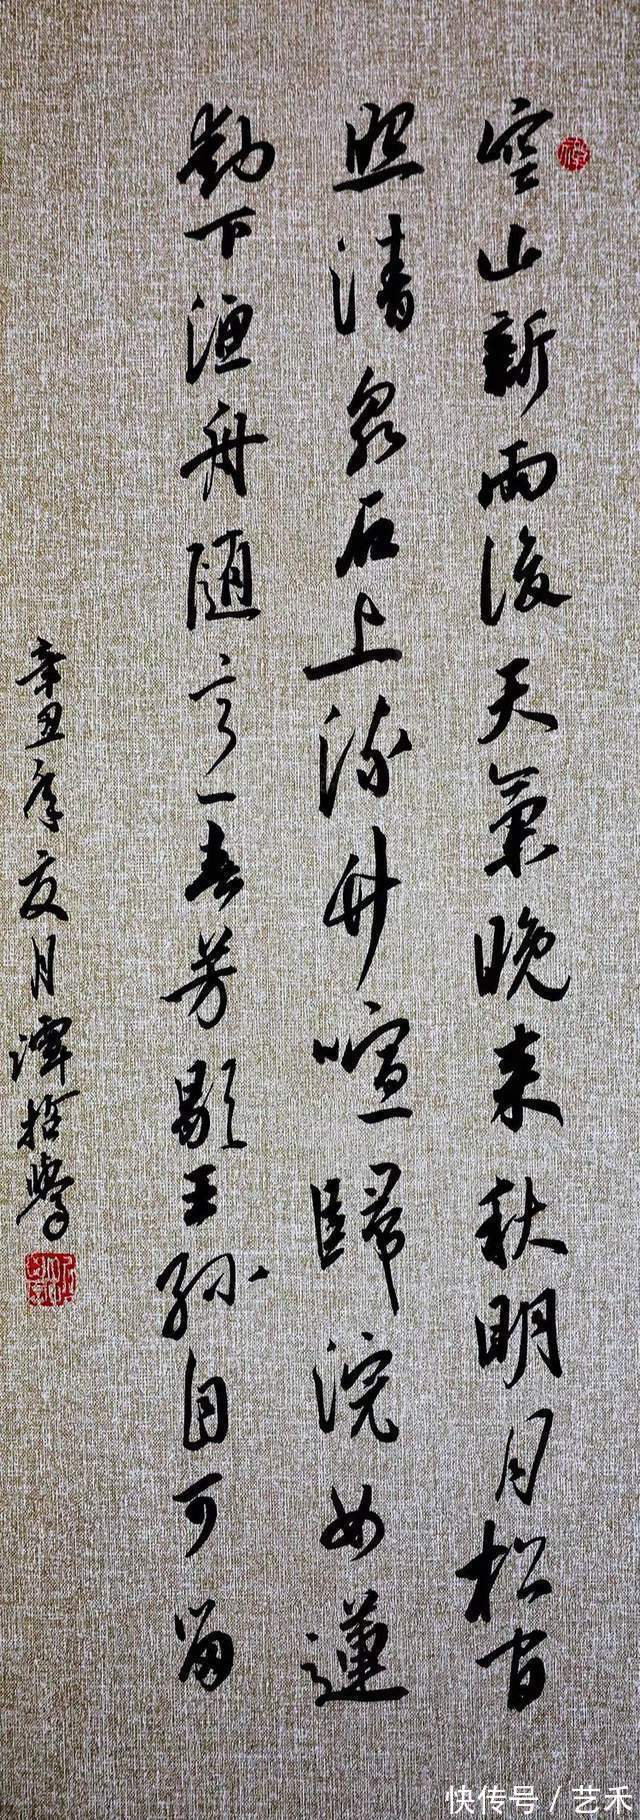 空山新雨後天氣晚來秋明月松間
照清泉石上流竹喧歸浣女蓮
動下漁舟隨意春芳歇王孫自可留
辛丑年夏月譚哲學
快传号／艺禾